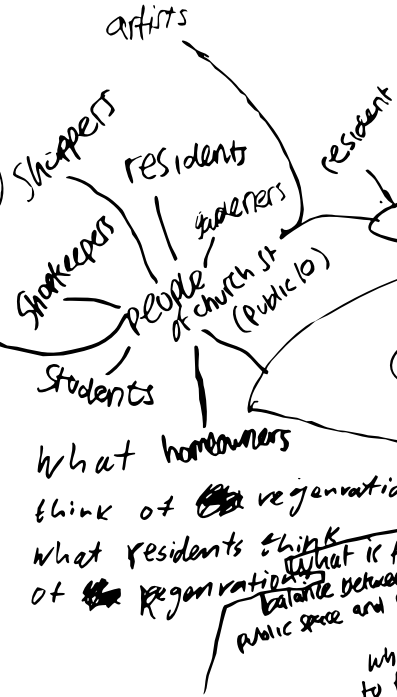 artists
Shoppers
residents
resident
gardeners
Shopkeepers
people
of church st
(public 10)
Students
homeowners
What
think of regenratio
what residents think
of regenration
What is
balance between
public space and
wh
to